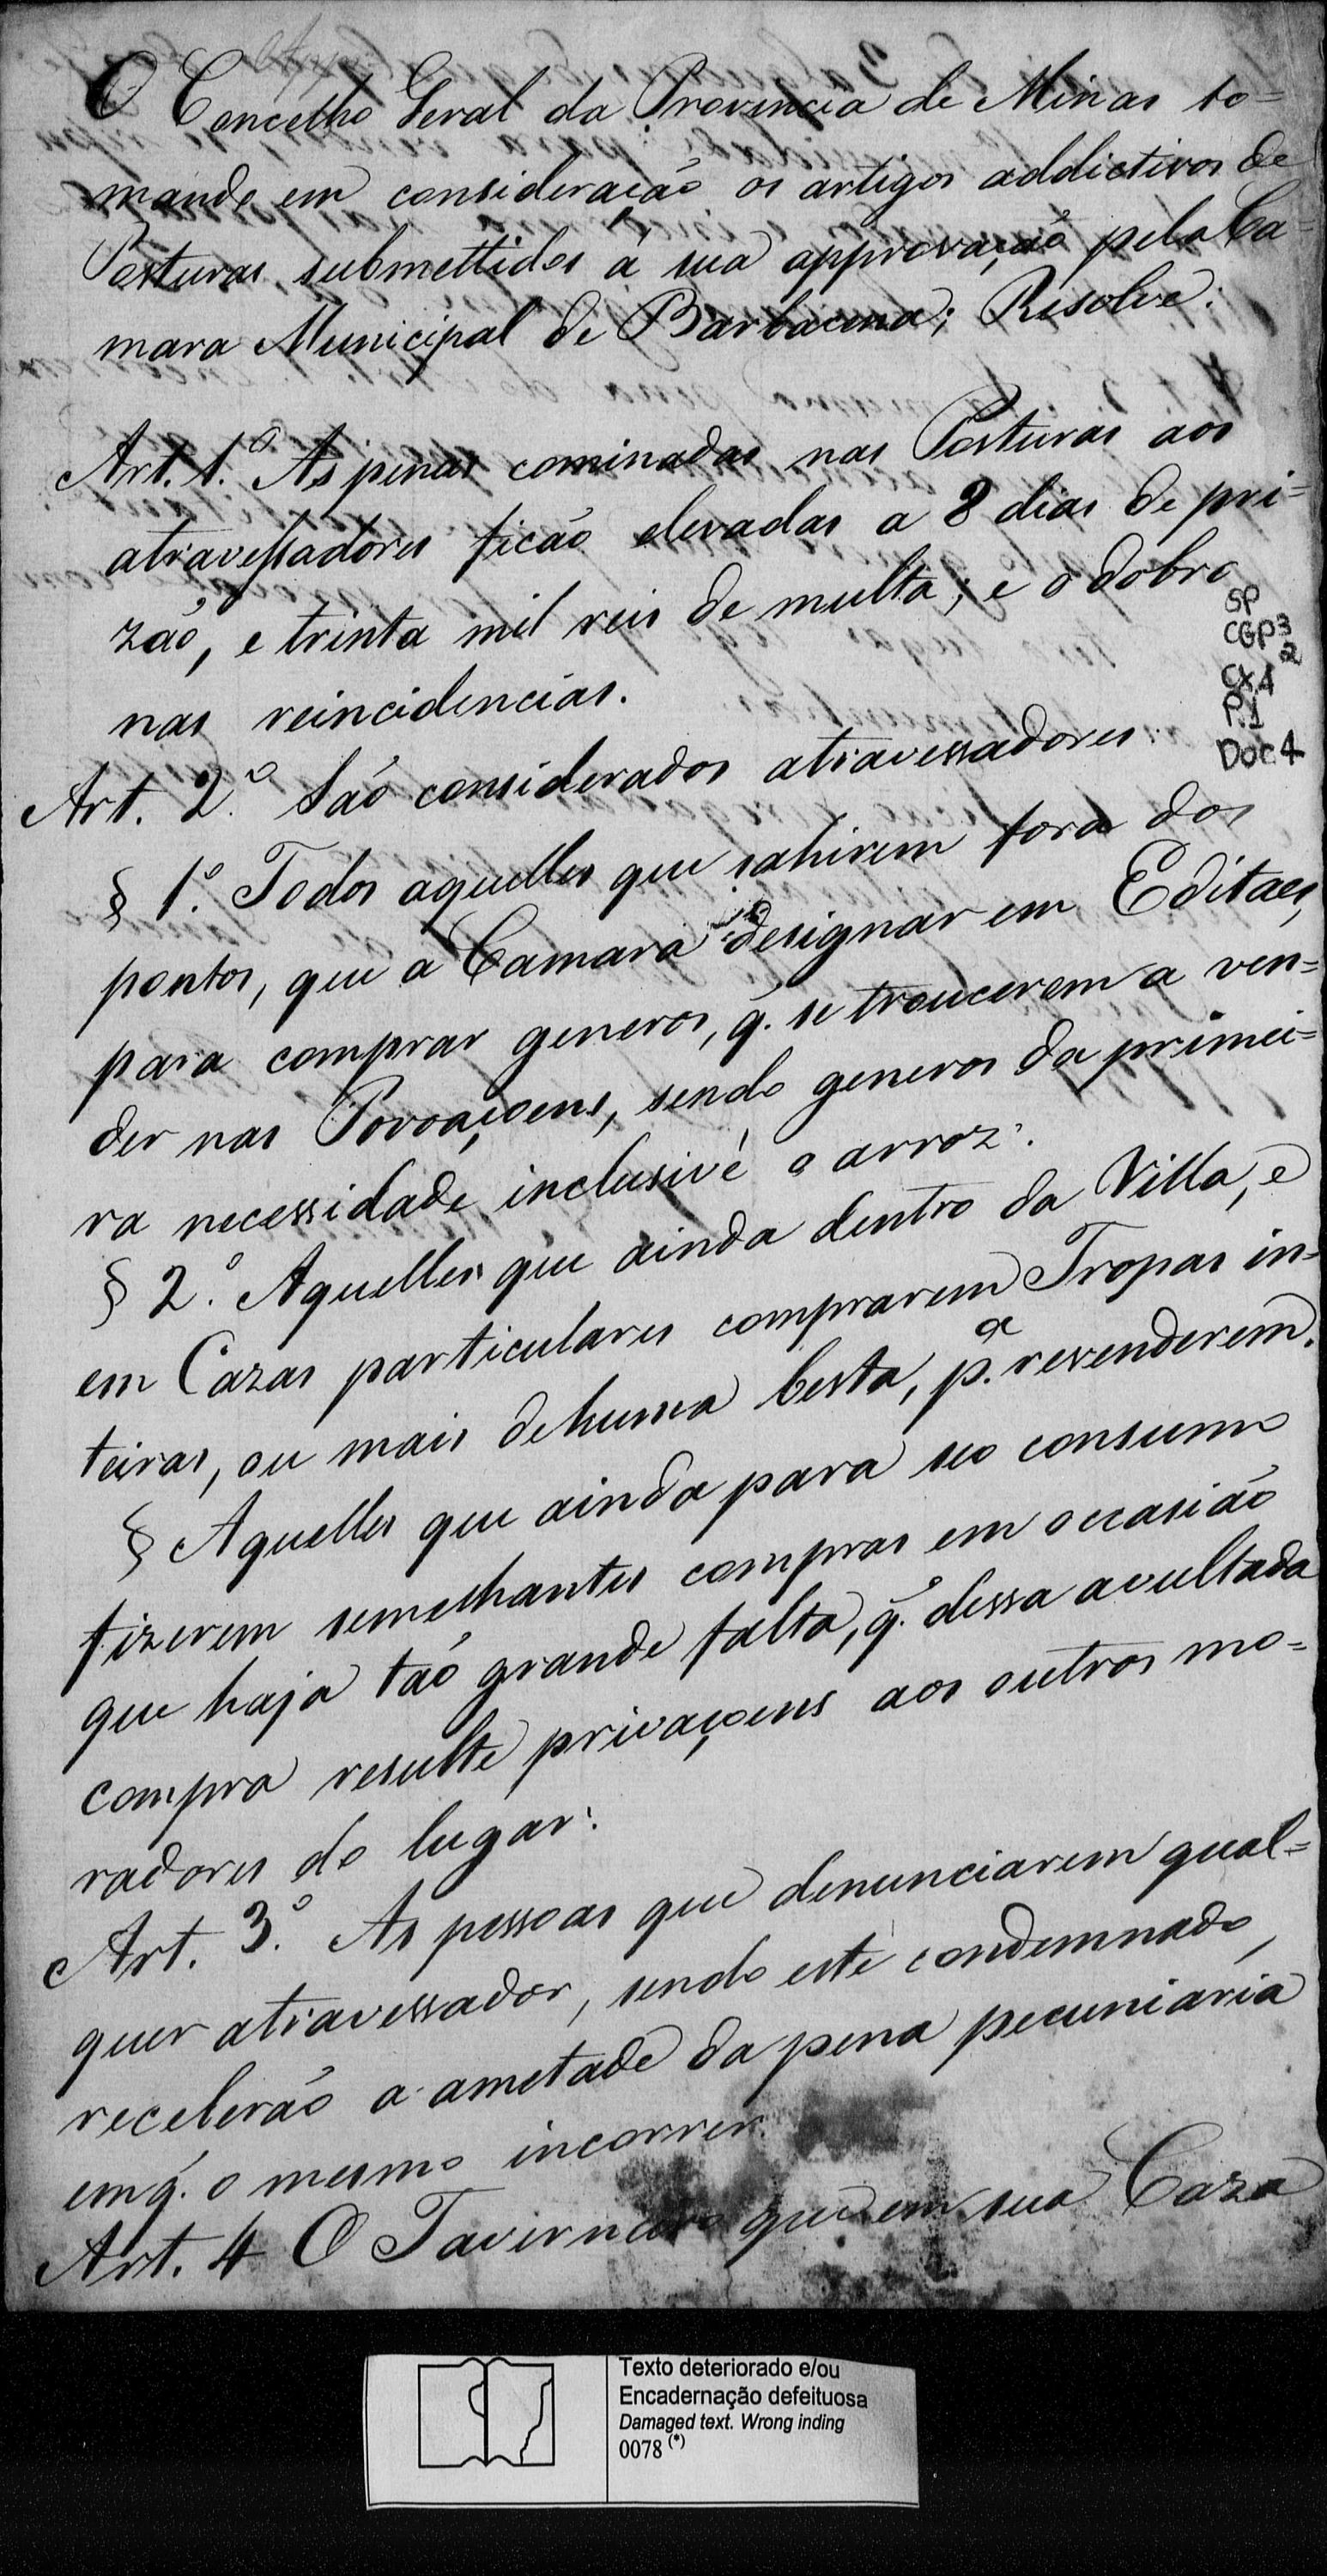 O Concelho Geral da Provincia de Minas to=
mando em consideração os artigos addictivos de
Posturas submettidos á sua approvação pela Ca=
mara Municipal de Barbacena; Resolve:
Art. 1.º As penas cominadas nas Posturas aos
atravessadores ficão elevadas a 8 dias de pri=
zão, e trinta mil reis de multa; e o dobro
nas reincidencias.
SP
CGP3
2
CX.4
P.1
Doc 4
Art. 2.º São considerados atravessadores.
§ 1.º Todos aquelles que sahirem fora dos
pontos, que a Camara designar em Editaes,
para comprar generos, q. se troucerem a ven=
der nas Povoaçoens, sendo generos da primei=
ra necessidade inclusivé o arroz.
§ 2.º Aquelles que ainda dentro da Villa, e
em Cazas particulares comprarem Tropas in=
teiras, ou mais de huma besta, p.ª revenderem.
§ Aquelles que ainda para seo consumo
fizerem semelhantes compras em occasião
que haja tão grande falta, q. dessa avultada
compra resulte privaçoens aos outros mo=
radores do lugar.
Art. 3.º As pessoas que denunciarem qual=
quer atravessador, sendo este condemnado,
receberão a ametade da pena pecuniaria
em q. o mesmo incorrer.
Art. 4 O Taverneiro que em sua Caza
Texto deteriorado e/ou
Encadernação defeituosa
Damaged text. Wrong inding
0078 (*)